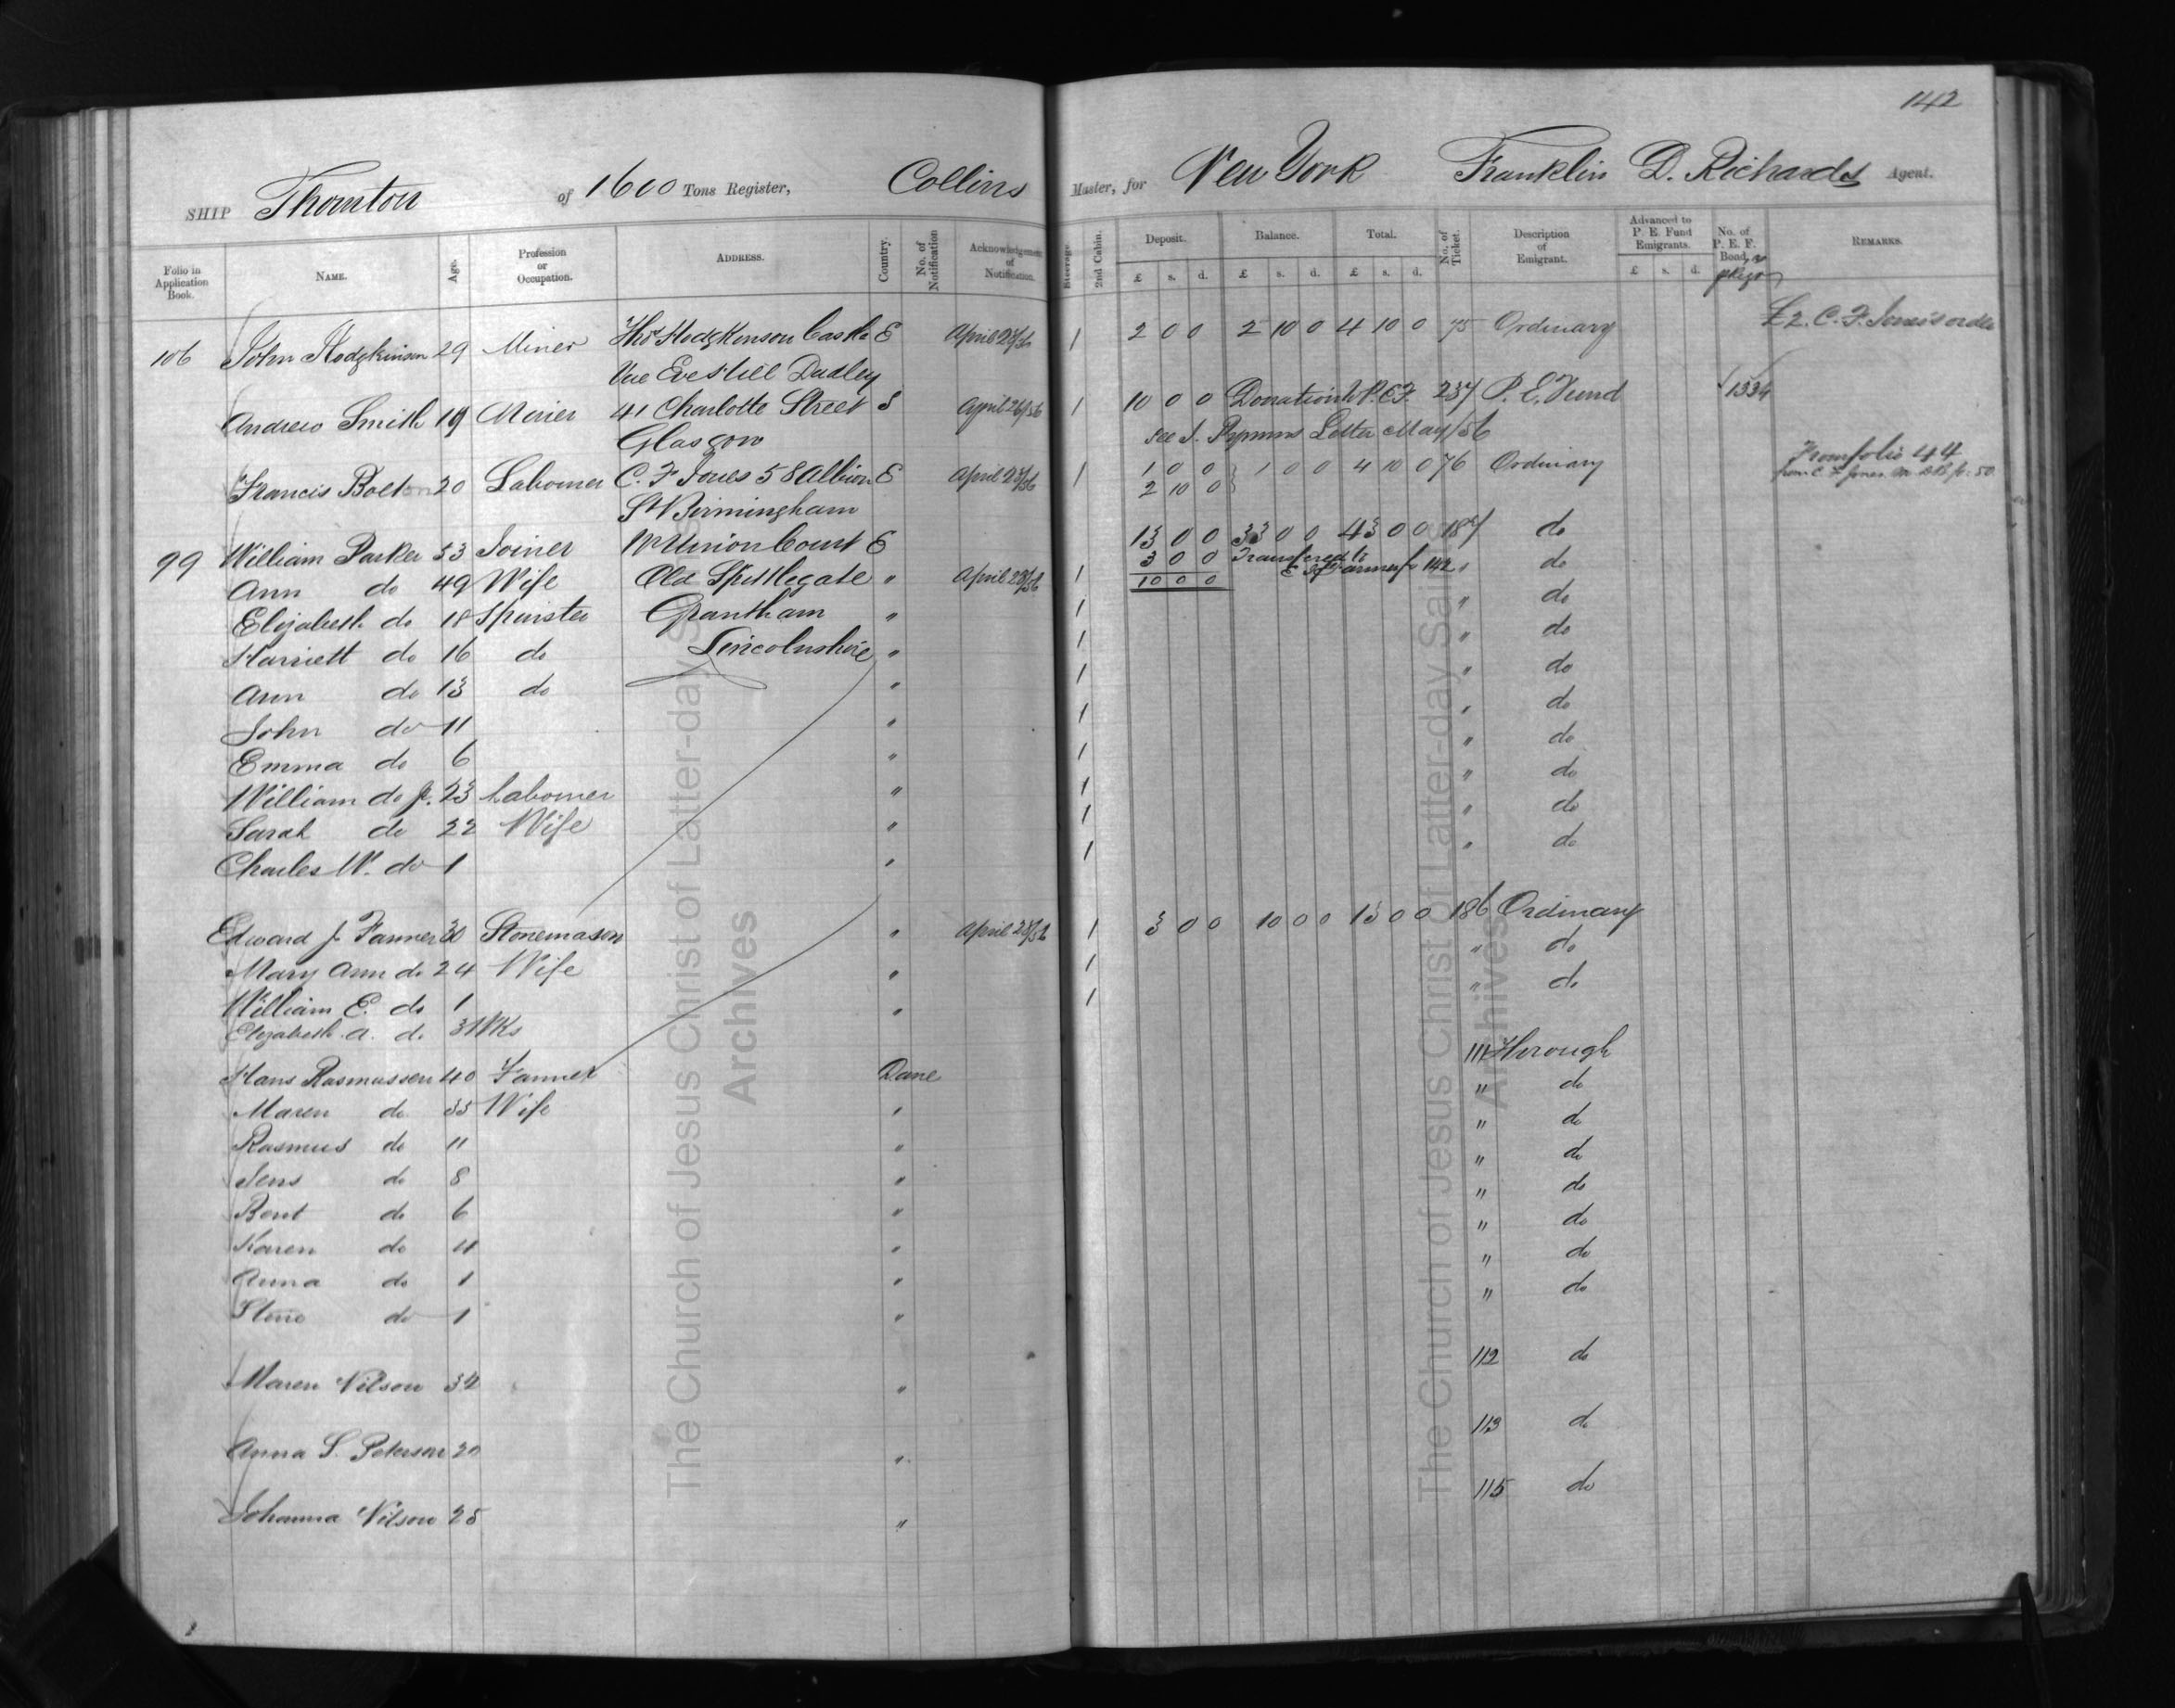 142
SHIP Thornton of 1600 Tons Register, Collins Master, for New York Franklin D. Richards Agent.
Folio in Application Book. NAME. Age. Profession or Occupation. ADDRESS. Country. No. of Notification Acknowledgement of Notification. Steerage. 2nd Cabin. Deposit. £ s. d. Balance. £ s. d. Total. £ s. d. No. of Ticket. Description of Emigrant. Advanced to P. E. Fund Emigrants. £ s. d. No. of P. E. F. Bond, REMARKS.
106 John Hodgkinson 29 Miner Thos Hodgkinson Castle E April 23/56 1 2 0 0 2 10 0 4 10 0 75 Ordinary £2. C. F. Jones's order
Vue Eve Hill Dudley
Andrew Smith 19 Miner 41 Charlotte Street S April 26/56 1 10 0 0 Donation to P.E.F. 237 P. E. Fund 1334
Glasgow see J. Letter May /56
Francis Bolton 20 Labourer C. F. Jones 58 Albion E April 23/56 1 1 0 0 1 0 0 4 10 0 76 Ordinary From folio 44
2 10 0 from C. F. Jones p. 50
St Birmingham
99 William Parker 53 Joiner Union Court E 13 0 0 33 0 0 43 0 0 187 do
3 0 0 Transfered to
Ann do 49 Wife Old Spittlegate " April 28/56 1 10 0 0 E. J. Fanner fo 142 " do
Elizabeth do 18 Spinster Grantham " 1 " do
Harriett do 16 do Lincolnshire " 1 " do
Ann do 13 do " 1 " do
John do 11 " 1 " do
Emma do 6 " 1 " do
William do Jr. 23 Labourer " 1 " do
Sarah do 22 Wife " 1 " do
Charles W. do 1 " 1 " do
Edward J. Fanner 30 Stonemason " April 28/56 1 3 0 0 10 0 0 13 0 0 186 Ordinary
Mary Ann do 24 Wife " 1 " do
William E. do 1 " 1 " do
Elizabeth A. do 3 Wks
Hans Rasmussen 40 Farmer Dane 111 Through
Maren do 35 Wife " " do
Rasmus do 11 " " do
Jens do 8 " " do
Bent do 6 " " do
Karen do 4 " " do
Anna do 1 " " do
do 1 " " do
Maren Nilson 34 " 112 do
Anna S. Peterson 20 " 113 do
Johanna Nilson 25 " 115 do
The Church of Jesus Christ of Latter-day Saints
Archives
The Church of Jesus Christ of Latter-day Saints
Archives